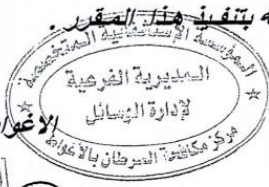 بتنفيذ هذا المقرر.
المؤسسة الإستشفائية المتخصصة
المديرية الفرعية
لإدارة الوسائل
مركز مكافحة السرطان بالأغواط
الاغوا